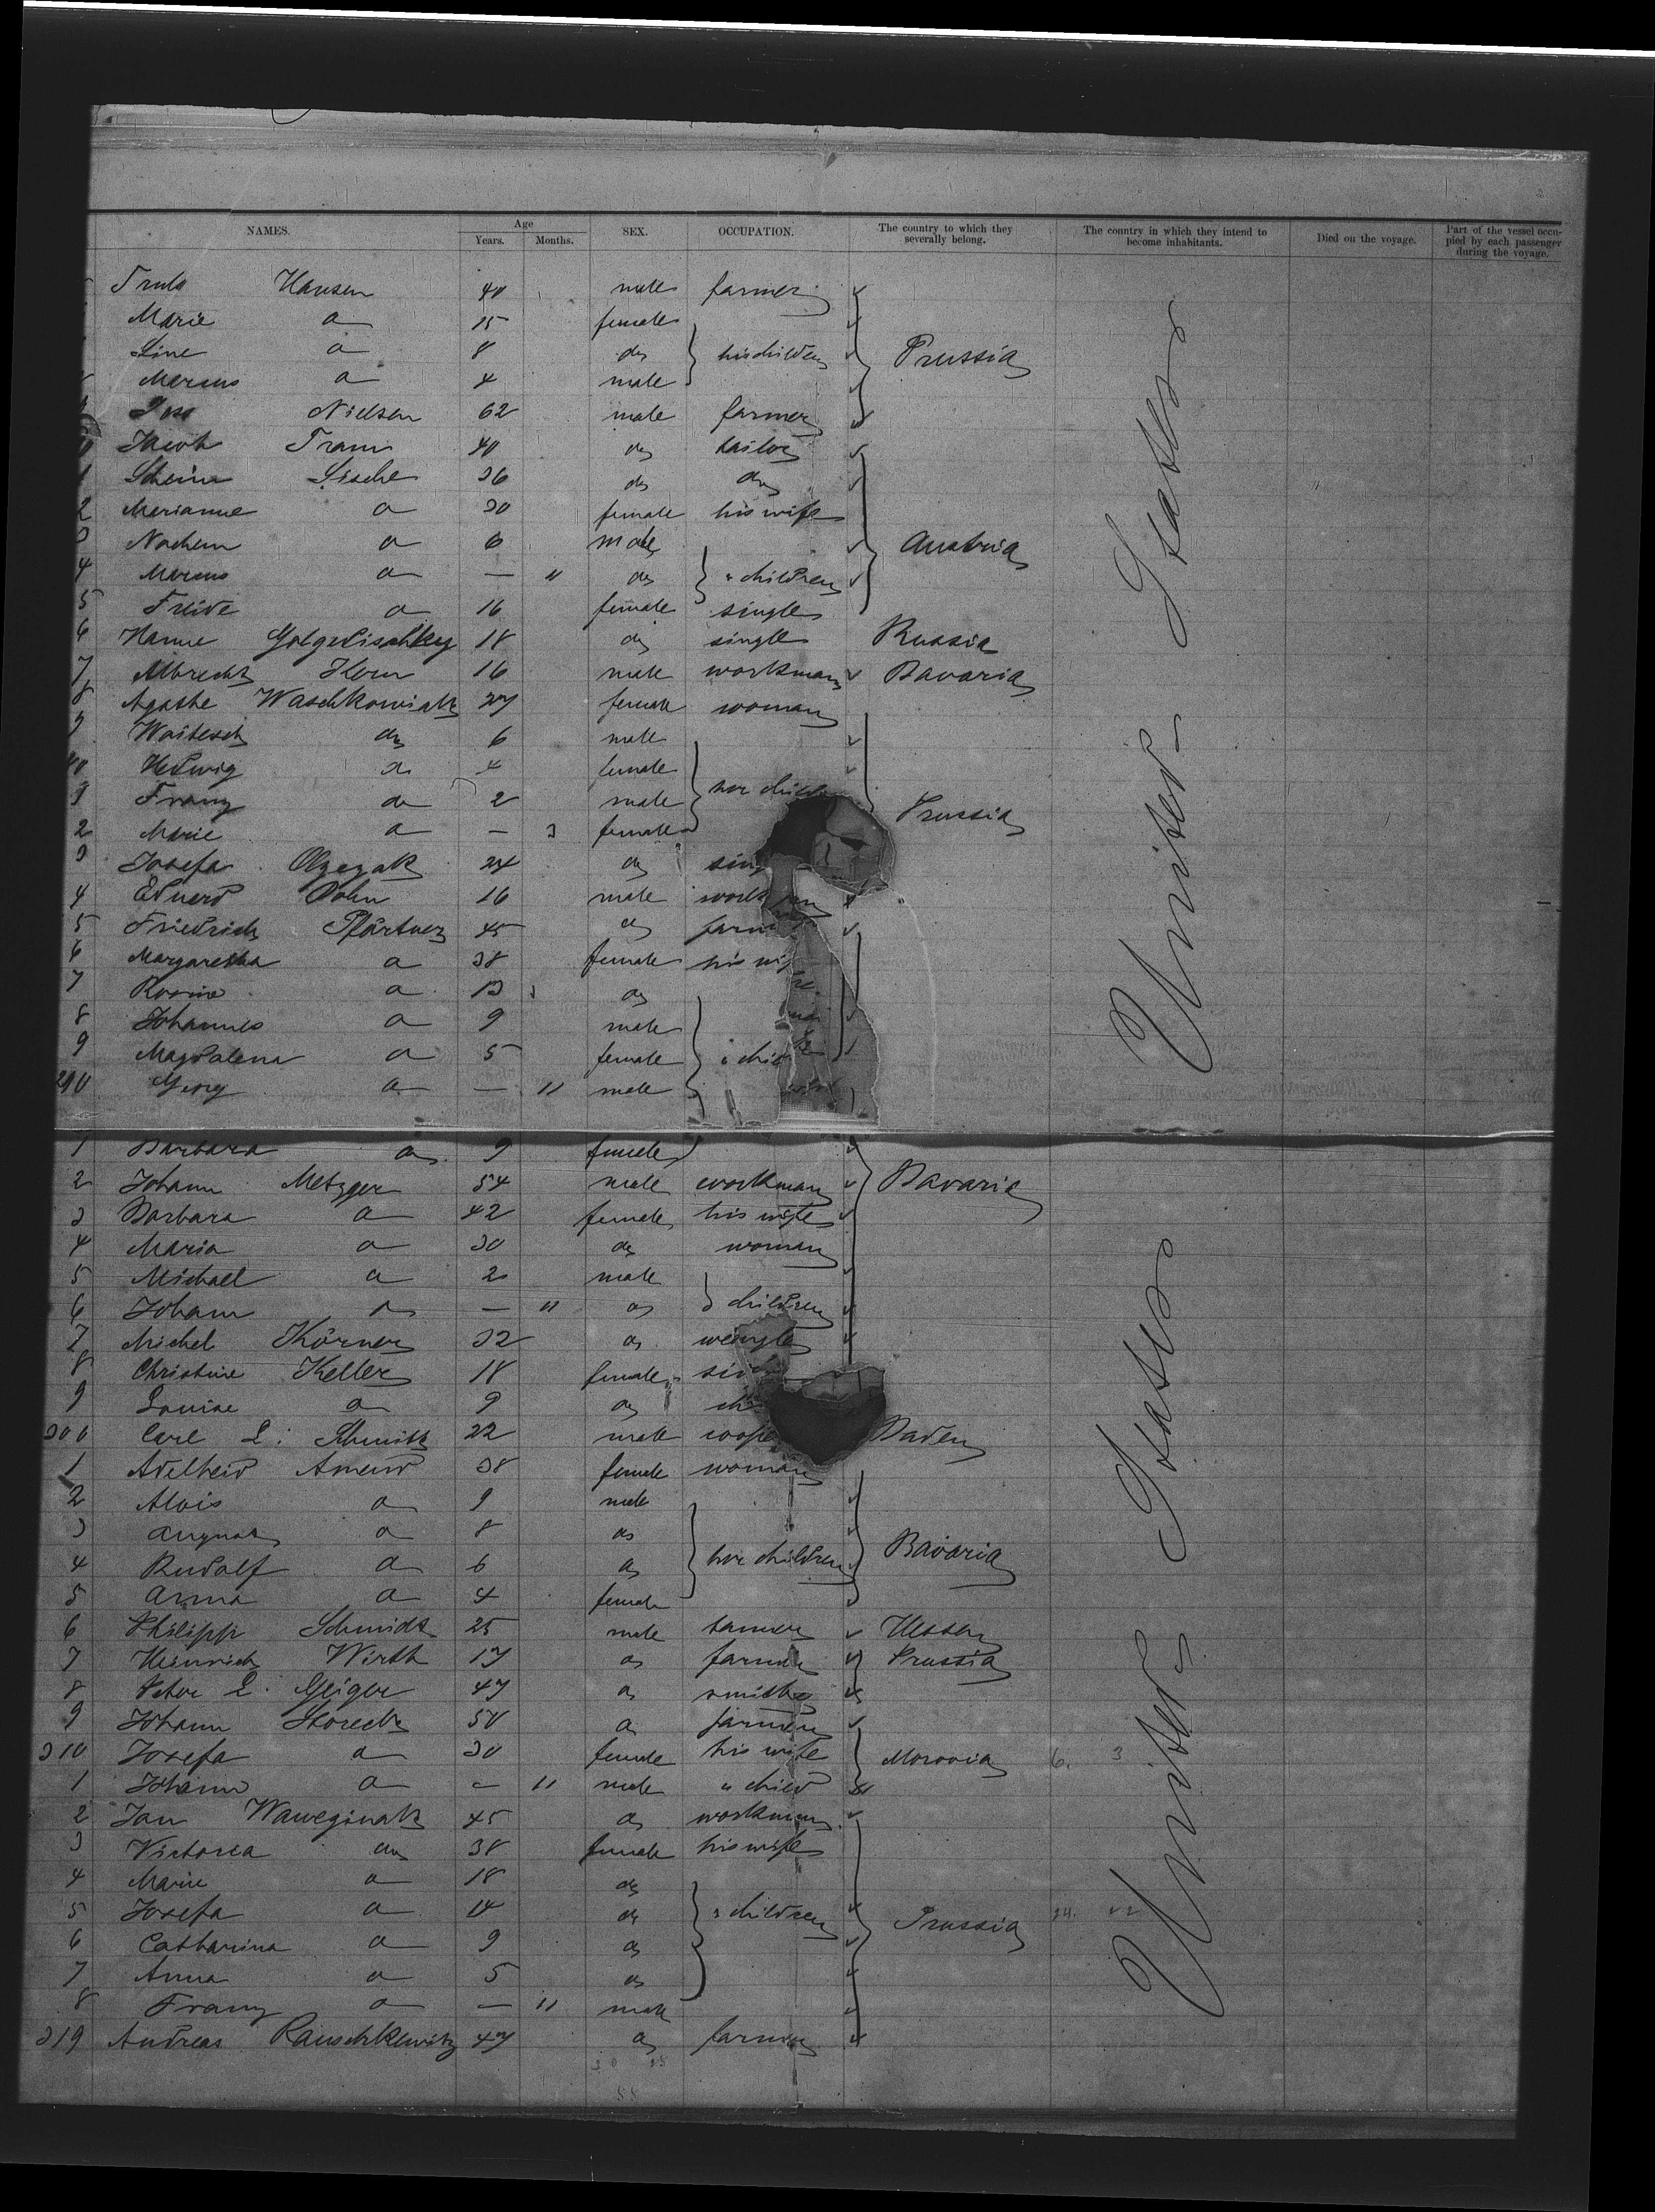 NAMES. Age Years. Months. SEX. OCCUPATION. The country to which they severally belong. The country in which they intend to become inhabitants. Died on the voyage. Part of the vessel occupied by each passenger during the voyage.
Truls Hansen 40 male farmer
Marie do 15 female
Line do 8 do his children Prussia
Marcus do 4 male
Nielsen 62 male farmer
Jacob 40 do tailor
Lische 26 do do
Marianne do 20 female his wife
3 Nochem do 6 male Austria
4 Marcus do — 11 do " children
5 Freide do 16 female single
6 Hanne 18 do single Russia
7 Albrecht Horn 16 male workman Bavaria
8 Agathe Waschkowiak 27 female woman
9 Woitesch do 6 male
Hedwig do 4 female
1 Franz do 2 male her child Prussia
2 Marie do — 3 female
3 Josefa Olzezak 24 do sing
4 Eduard Dohn 16 male workman
5 Friedrich Pförtner 45 do farm
6 Margaretha do 38 female his wif
7 Rosine do 13 do
8 Johannes do 9 male
9 Magdalena do 5 female " chil
290 Georg do — 11 male
United States
1 Barbara do 9 female
2 Johann Metzger 54 male workman Bavaria
3 Barbara do 42 female his wife
4 Maria do 30 do woman
5 Michael do 2 male
6 Johann do — 11 do children
7 Michel Körner 32 do
8 Christine Keller 18 female
9 Louise do 9 do
300 Carl L. Schmitt 22 male coope Baden
1 Adelheid Amend 38 female woman
2 Alois do 9 male
3 August do 8 do
4 Rudolf do 6 do her children Bavaria
5 Anna do 4 female
6 Philipp Schmidt 25 male tanner Hessen
7 Heinrich Wirth 17 do farmer Prussia
8 Peter L. Geiger 47 do smith
9 Johann Skoreck 50 do farmer
310 Josefa do 30 female his wife Moravia 6. 3
1 Johann do — 11 male " child
2 Jan Waweginak 45 do workman
3 Victoria do 38 female his wife
4 Marie do 18 do
5 Josefa do 14 do " children Prussia
6 Catharina do 9 do
7 Anna do 5 do
8 Franz do — 11 male
319 Andreas Rauschkewitz 47 do farmer
United States